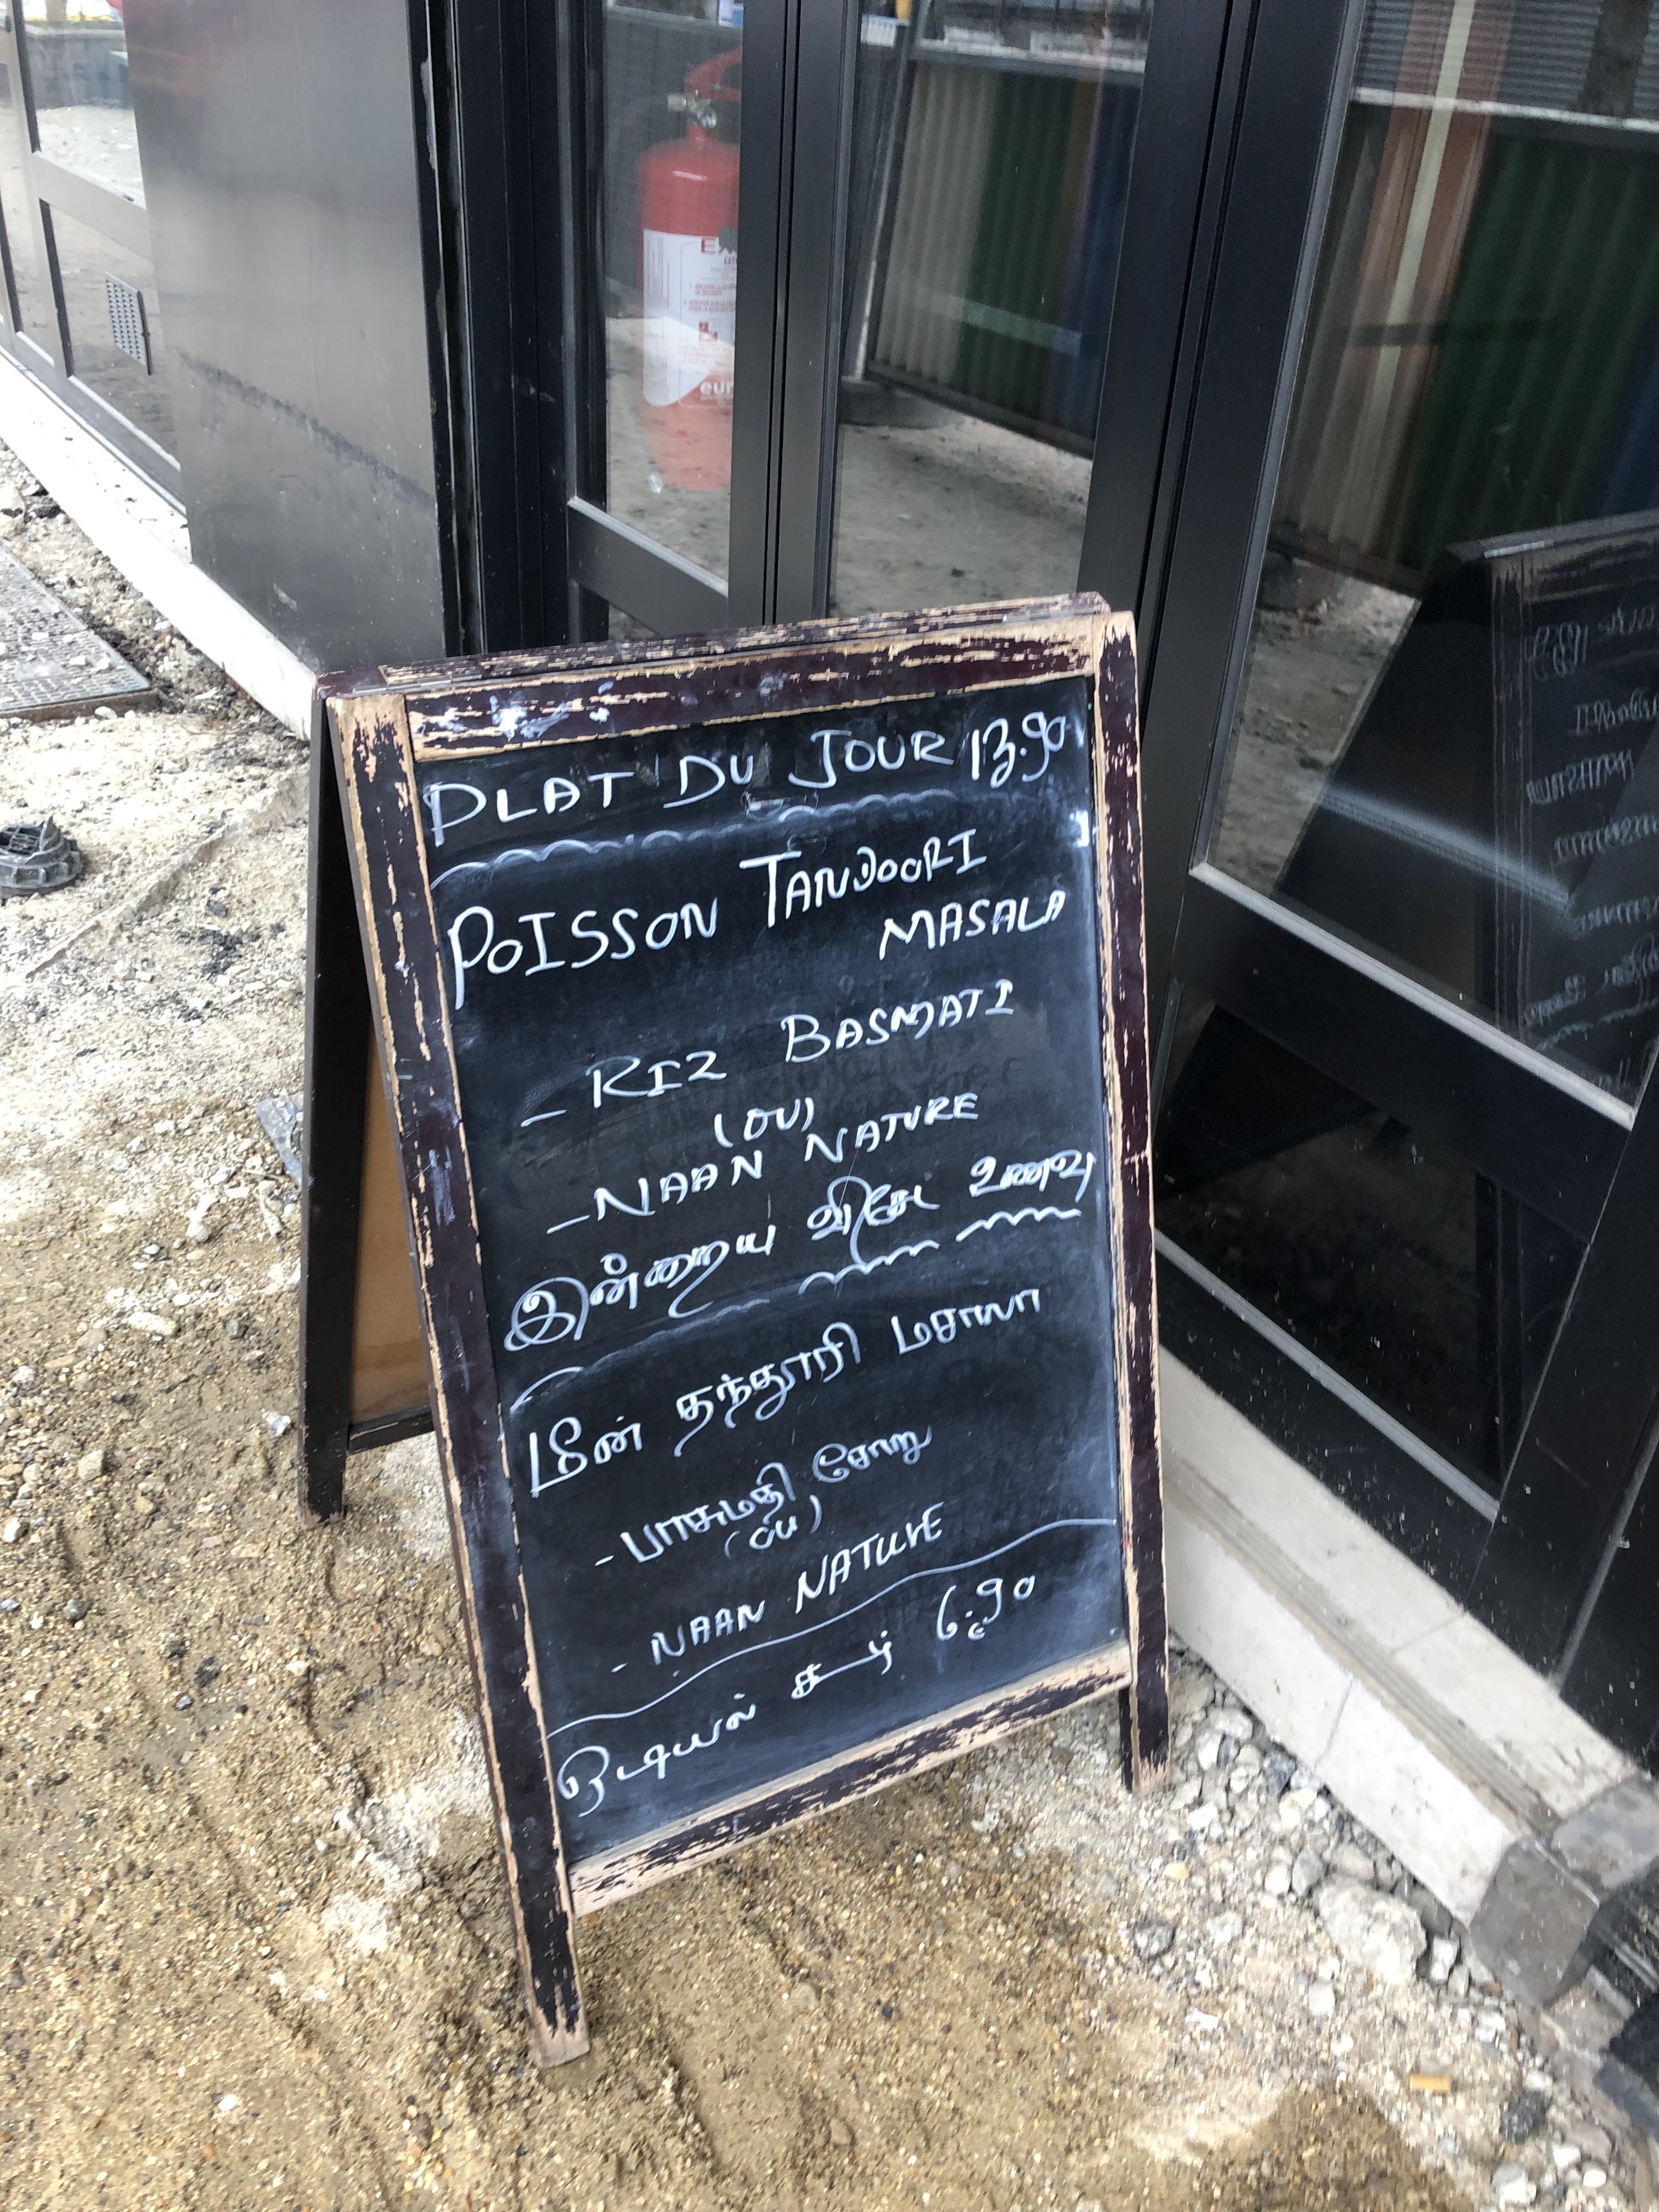 PLAT DU JOUR 13.90
POISSON TANDOORI
MASALA
- RIZ BASMATI
(OU)
- NAAN NATURE
இன்றைய விசேட உணவு
மீன் தந்தூரி மசாலா
- பாசுமதி சோறு
(ou)
- NAAN NATURE
ஒடியல் கூழ் 6.90